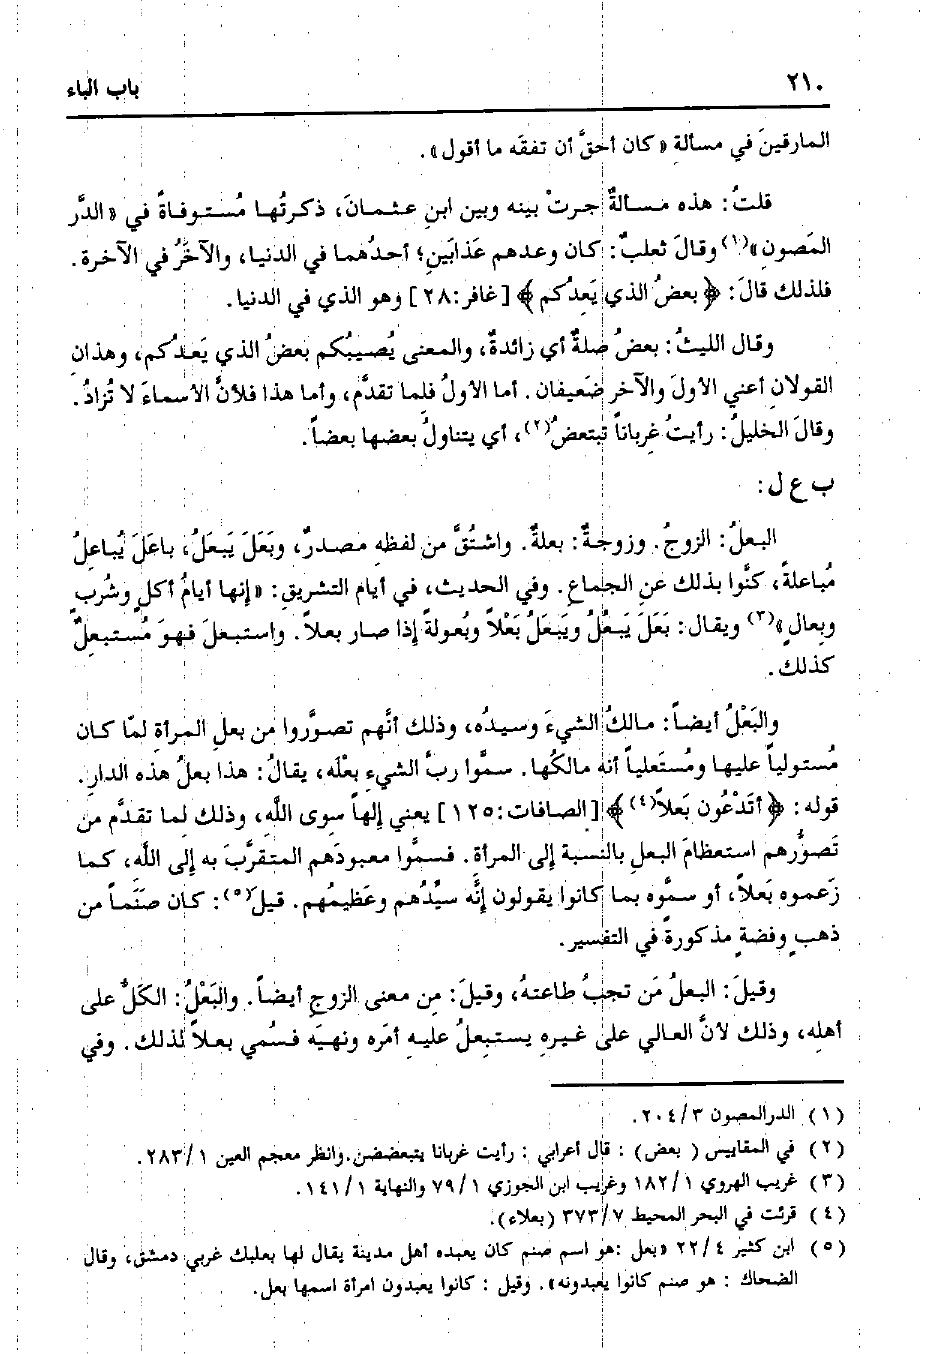 ٢١٠
باب الباء
المارقينَ في مسألةِ « كان أحقَّ أن تفقَه ما أقول » .
قلتُ : هذه مسألةٌ جرتْ بينه وبين ابنِ عثمانَ، ذكرتُها مُستوفاةً في « الدَّر
المَصونِ »(١) وقالَ ثعلبٌ : كان وعدهم عَذابَينِ؛ أحدُهما في الدنيا، والآخَرُ في الآخرة .
فلذلك قالَ : ﴿ بعضُ الذي يَعِدُكم ﴾ [ غافر : ٢٨ ] وهو الذي في الدنيا .
وقال الليثُ : بعضُ صِلةٌ أي زائدةٌ، والمعنى يُصيبُكم بعضُ الذي يَعدُكم، وهذانِ
القولانِ أعني الأولَ والآخر ضَعيفان . أما الأولُ فلِما تقدَّم، وأما هذا فلأنَّ الأسماءَ لا تُزادُ .
وقالَ الخليلُ : رأيتُ غِرباناً تبتعضُ(٢)، أي يتناولُ بعضها بعضاً .
ب ع ل :
البعلُ : الزوجُ . وزوجةٌ : بعلةٌ . واشتُقَّ من لفظهِ مصدرٌ، وبَعَلَ يَبعَلُ، باعَلَ يُباعِلُ
مُباعلةً، كنَّوا بذلك عنِ الجماعِ . وفي الحديث، في أيام التشريقِ : « إنها أيامُ أكلٍ وشُربٍ
وبِعالٍ »(٣) ويقال : بَعَلَ يَبعُلُ ويَبعَلُ بَعْلاً وبُعولةً إذا صار بعلاً . واستبعلَ فهوَ مُستبعِلٌ
كذلك .
والبَعْلُ أيضاً : مالكُ الشيءَ وسيدُه، وذلك أنَّهم تصوَّروا من بعلِ المرأةِ لمّا كان
مُستولياً عليها ومُستَعلياً أنه مالكُها . سموا ربَّ الشيءِ بعْلَه، يقالُ : هذا بعلُ هذه الدارِ .
قوله : ﴿ أتَدْعُون بَعلاً(٤) ﴾ [ الصافات : ١٢٥ ] يعني إلهاً سِوى اللَّهِ، وذلك لِما تقدَّم من
تَصوُّرهم استعظامَ البعلِ بالنسبة إلى المرأة . فسمَّوا معبودَهم المتقرَّبَ به إلى اللَّهِ، كما
زَعموه بَعلاً، أو سمَّوه بما كانوا يقولون إنَّه سيِّدُهم وعَظيمُهم . قيلَ(٥) : كان صَنَماً من
ذهبٍ وفضةٍ مذكورةً في التفسير .
وقيلَ : البعلُ مَن تجبُ طاعته، وقيلَ : مِن معنى الزوجِ أيضاً . والبَعْلُ : الكَلُّ على
أهلهِ، وذلك لأنَّ العالي على غيرهِ يستبعِلُ عليهِ أمرَه ونهيَه فسُمي بعلاً لذلك . وفي
( ١ ) الدرالمصون ٣ / ٢٠٤ .
( ٢ ) في المقاييس ( بعض ) : قال أعرابي : رأيت غربانا يتبعضضن.وانظر معجم العين ١ / ٢٨٣ .
( ٣ ) غريب الهروي ١ / ١٨٢ وغريب ابن الجوزي ١ / ٧٩ والنهاية ١ / ١٤١ .
( ٤ ) قرئت في البحر المحيط ٧ / ٣٧٣ (بعلاء).
( ٥ ) ابن كثير ٤ / ٢٢ « بعل :هو اسم صنم كان يعبده أهل مدينة يقال لها بعلبك غربي دمشق، وقال
الضحاك : هو صنم كانوا يعبدونه ». وقيل : كانوا يعبدون امرأة اسمها بعل .